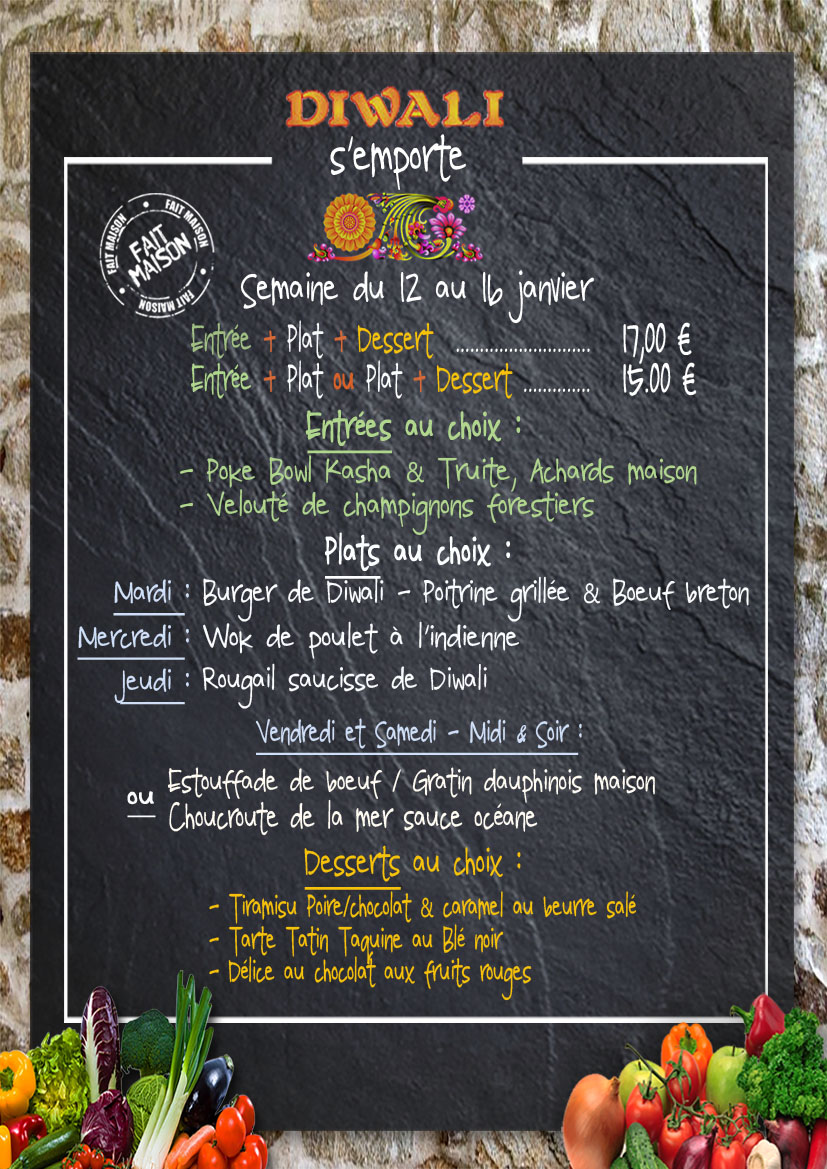 DIWALI
s'emporte
FAIT MAISON
FAIT MAISON
FAIT MAISON
FAIT MAISON
Semaine du 12 au 16 janvier
Entrée + Plat + Dessert ............................. 17,00 €
Entrée + Plat ou Plat + Dessert .............. 15.00 €
Entrées au choix :
- Poke Bowl Kasha & Truite, Achards maison
- Velouté de champignons forestiers
Plats au choix :
Mardi : Burger de Diwali - Poitrine grillée & Boeuf breton
Mercredi : Wok de poulet à l'indienne
Jeudi : Rougail saucisse de Diwali
Vendredi et Samedi - Midi & Soir :
Estouffade de boeuf / Gratin dauphinois maison
ou
Choucroute de la mer sauce océane
Desserts au choix :
- Tiramisu Poire/chocolat & caramel au beurre salé
- Tarte Tatin Taquine au Blé noir
- Délice au chocolat aux fruits rouges